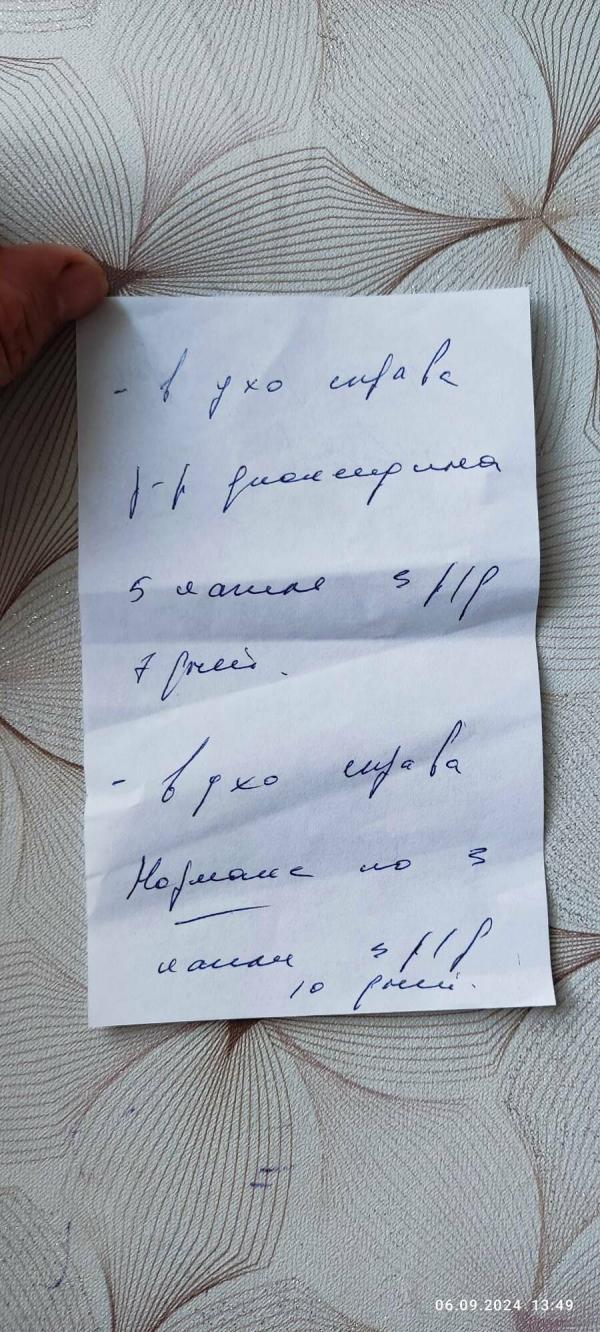 - в ухо справа
р-р диоксидина
5 капель 3 р/д
7 дней.
- в ухо справа
Нормакс по 3
капли 3 р/д
10 дней.
06.09.2024 13:49